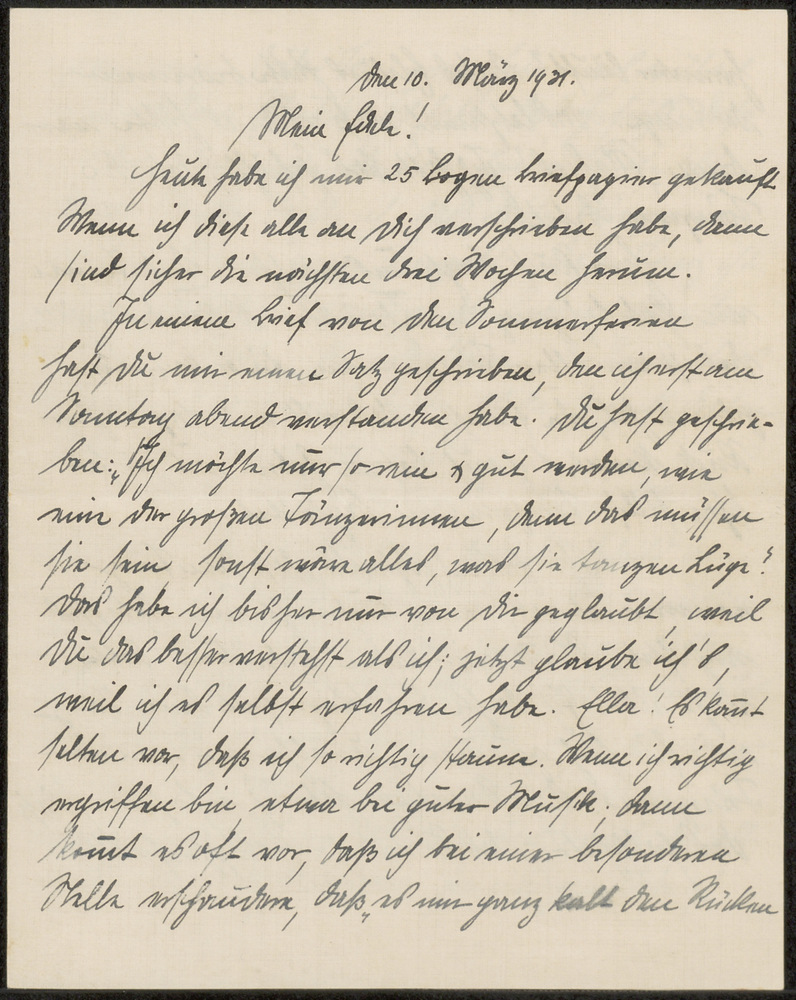 den 10. März 1931.
Mein Edele!
Heute habe ich mir 25 Bogen Briefpapier gekauft
Wenn ich diese alle an Dich verschrieben habe, dann
sind sicher die nächsten drei Wochen herum.
In einem Brief von den Sommerferien
hast Du mir einen Satz geschrieben, den ich erst am
Sonntag abend verstanden habe. Du hast geschrie-
ben: „Ich möchte nur so rein & gut werden, wie
eine der großen Tänzerinnen, denn das müssen
sie sein, sonst wäre alles, was sie tanzen Lüge“.
Das habe ich bisher nur von Dir geglaubt, weil
Du das besser verstehst als ich; jetzt glaube ich's,
weil ich es selbst erfahren habe. Ella! Es kom̄t
selten vor, daß ich so richtig staune. Wenn ich richtig
ergriffen bin, etwa bei guter Musik, dann
kom̄t es oft vor, daß ich bei einer besonderen
Stelle erschaudere, daß „es mir ganz kalt den Rücken